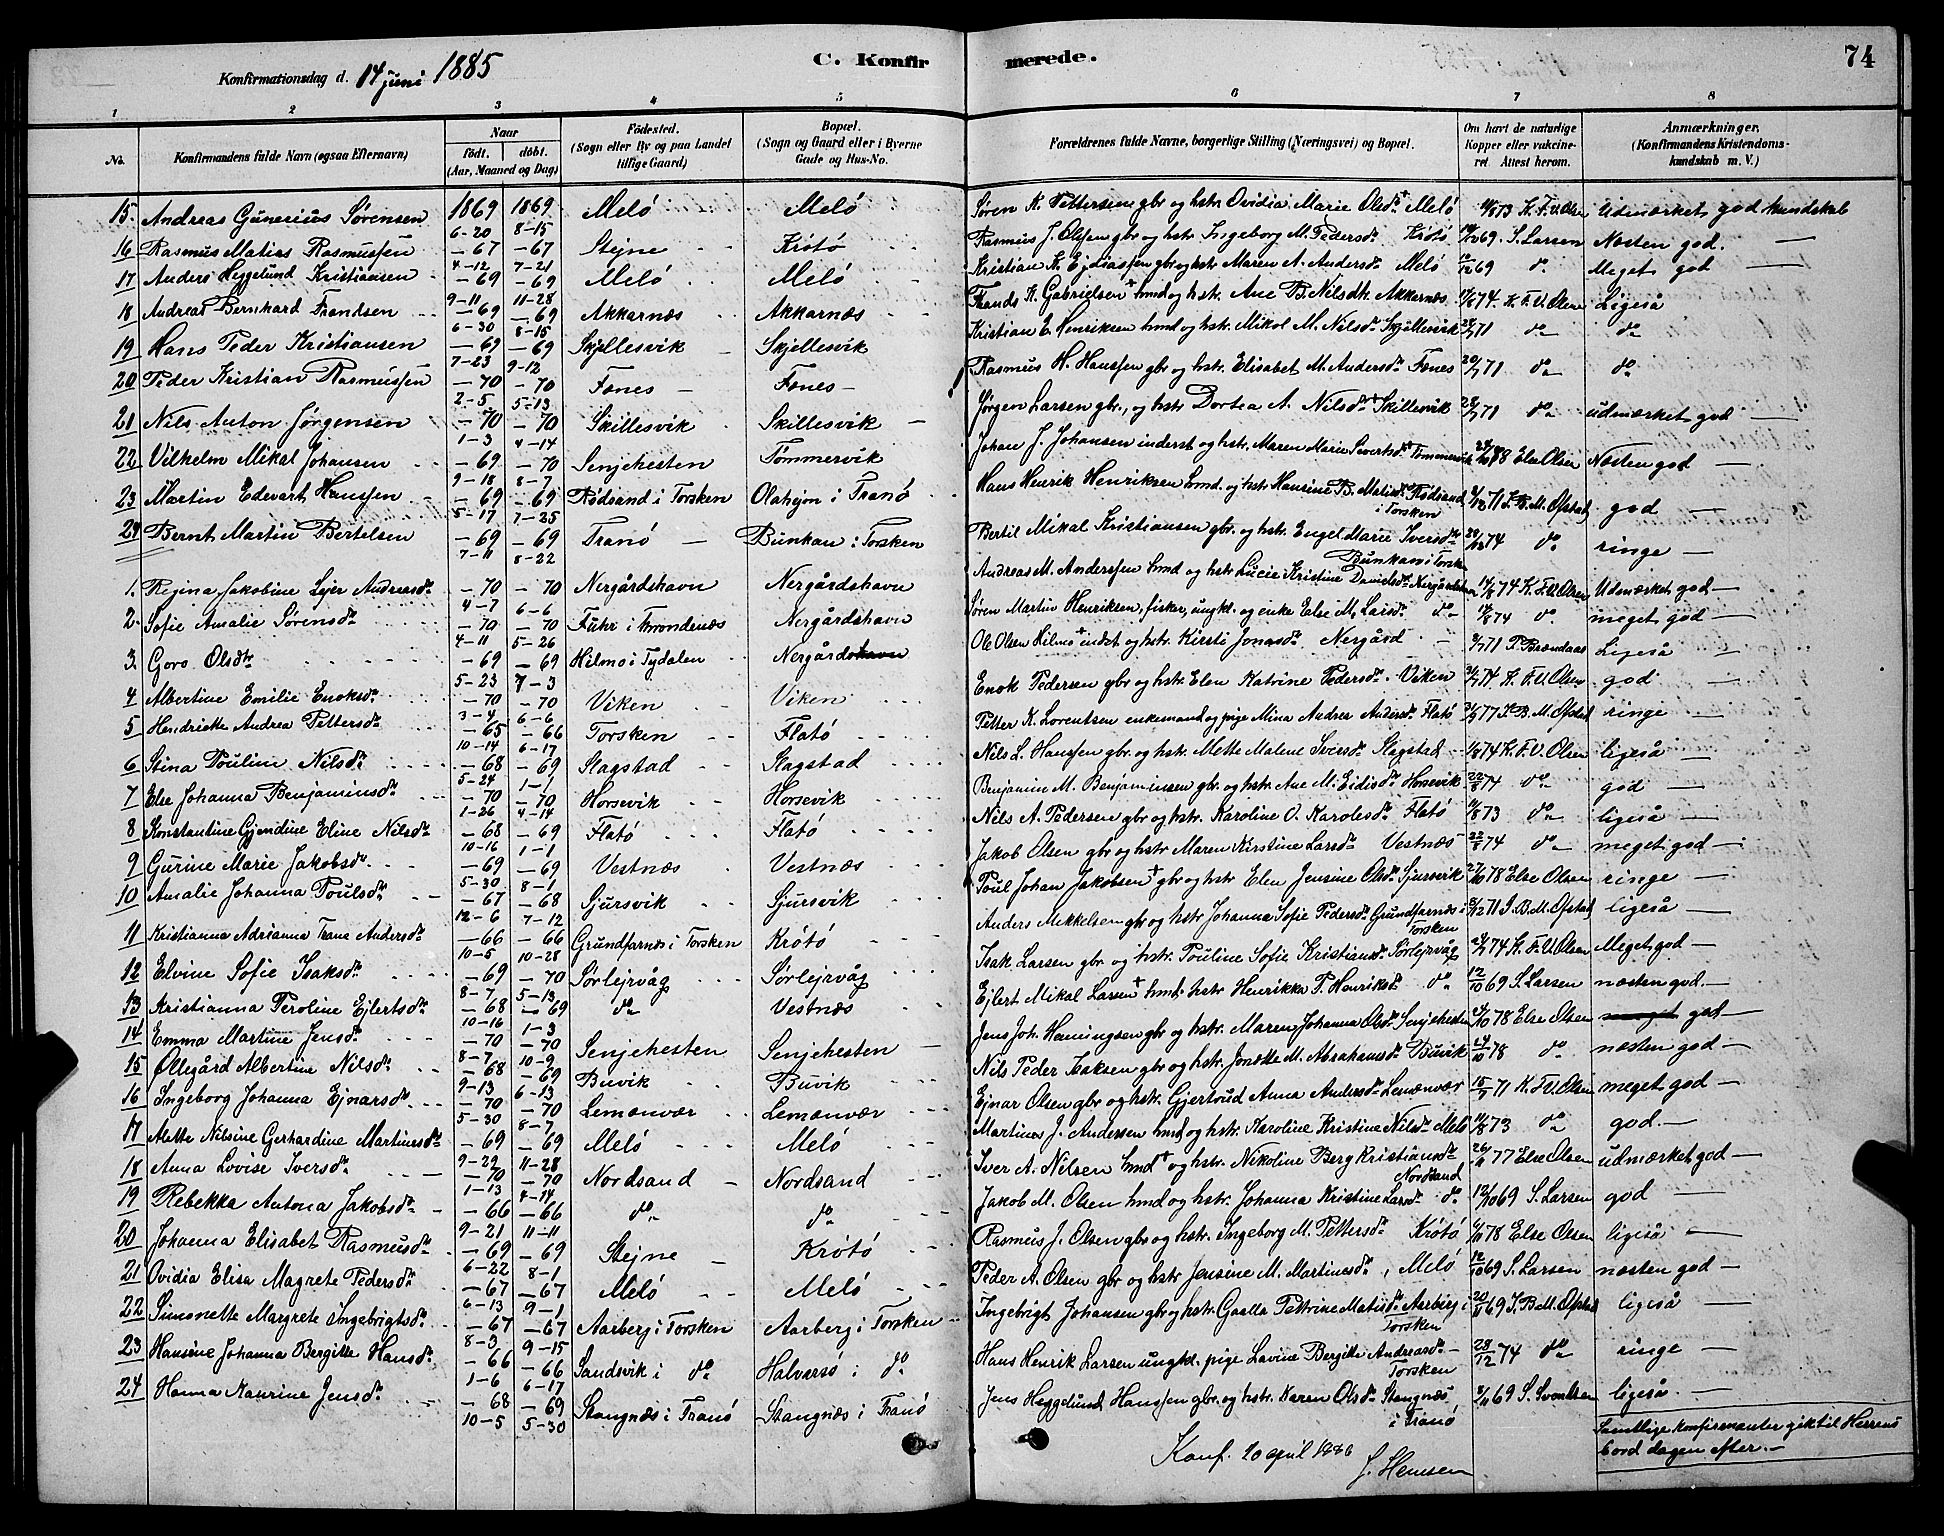 Konfirmationsdag d. 14 juni 1885
C. Konfir merede. 74
1 2 3 4 5 6 7 8
No. Konfirmandens fulde Navn (ogsaa Efternavn) Naar födt. döbt. (Aar, Maaned og Dag) Födested. (Sogn eller By og paa Landet tillige Gaard) Bopæl. (Sogn og Gaard eller i Byerne Gade og Hus-No. Forældrenes fulde Navne, borgerlige Stilling (Næringsvei) og Bopæl. Om havt de naturlige Kopper eller vakcineret. Attest herom. Anmærkninger. (Konfirmandens Kristendomskundskab m. V.)
15. Andreas Gunerius Sørensen 1869 6-20 1869 8-15 Melö Melö Søren K. Pettersen gbr og hstr Ovidia Marie Olsdr Melö 73 K. F. V. Olsen Udmærket god kundskab
16 Rasmus Matias Rasmussen -67 4-12 -67 7-21 Stejne Krötö Rasmus J. Olsen gbr og hstr Ingeborg M. Pedersdr Krötö 69. S. Larsen Næsten god. —
17 Anders Heggelund Kristiansen -69 9-11 -69 11-28 Melö Melö Kristian K. Ejdiassen gbr og hstr Maren A. Andersdr Melö 69 do Meget god —
18 Andreas Bernhard Frandsen -69 6-30 -69 8-15 Akkarnæs Akkarnæs Frands K. Gabrielsen + hmd og hstr. Ane B. Nilsdtr Akkarnæs 74. K. F. V. Olsen Ligeså
19 Hans Peder Kristiansen -69 7-23 -69 9-12 Skjellesvik Skjellesvik Kristian E. Henriksen hmd og hstr. Mikol M. Nilsdr Skjellesvik 71 do do
20 Peder Kristian Rasmussen -70 2-5 -70 5-13 Fones Fones Rasmus H. Hanssen gbr og hstr. Elisabet M. Andersdr Fones 71 do do
21 Nils Anton Jørgensen -70 1-3 -70 4-14 Skillesvik Skillesvik Jørgen Larsen gbr., og hstr Dortea A. Nilsdr Skillesvik 71 do udmærket god —
22 Vilhelm Mikal Johansen -69 9-18 -70 8-7 Senjehesten Tömmervik Johan J. Johansen inderst og hstr. Maren Marie Sivertsdr Tömmervik 78 Else Olsen Næsten god —
23 Martin Edevart Hanssen -69 5-17 -69 7-25 Rödsand i Torsken Olahejm i Tranö Hans Henrik Henriksen hmd. og hstr Hansine B. Matisdr Rödsand i Torsken 71 J. B. M. Ofstad god —
24 Bernt Martin Bertelsen -69 7-11 -69 8-22 Tranö Bunkan i Torsken Bertil Mikal Kristiansen gbr. og hstr. Engel Marie Iversdr Bunkan i Torsken 74 do ringe —
1. Regina Jakobine Lejer Andreasdr -70 4-7 -70 6-6 Nergårdshavn Nergårdshavn Andreas M. Anderssen hmd og hstr Lucie Kristine Danielsdr Nergårdshavn 74 K. F. V. Olsen Udmærket god —
2. Sofie Amalie Sørensdr -70 4-11 -70 5-26 Fuhr i Throndenæs Nergårdshavn Søren Martin Henriksen, fisker, ungkl. og enke Else M. Larsdr do 74 do meget god —
3. Goro Olsdtr -69 5-23 -69 7-3 Hilmo i Tydalen Nergårdshavn Ole Olsen Hilmo + inderst og hstr. Kirsti Jonasdr Nergård 71 P. Brændaas Ligeså —
4 Albertine Emilie Enoksdr -70 3-4 -70 6-6 Viken Viken Enok Pedersen gbr og hstr. Elen Katrine Pedersdr Viken 74 K. F. V. Olsen god —
5 Hendrikke Andrea Pettersdr -65 10-14 -66 6-17 Torsken Flatö Petter K. Lorentsen enkemand og pige Mina Andrea Andersdr Flatö 77 J. B. M. Ofstad ringe —
6 Stina Pouline Nilsdr -68 5-24 -69 1-1 Slagstad Slagstad Nils L. Hanssen gbr. og hstr. Mette Malene Iversdr Slagstad 74 K. F. V. Olsen ligeså —
7 Else Johanna Benjaminsdr -70 1-26 -70 4-14 Horsevik Horsevik Benjamin M. Benjaminsen gbr. og hstr. Ane M. Eidisdr Horsevik 22/8 74 do god —
8 Konstantine Gjendine Eline Nilsdr -68 10-16 -69 1-1 Flatö Flatö Nils A. Pedersen gbr og hstr. Karoline O. Karolesdr Flatö 73 do ligeså —
9 Gurine Marie Jakobsdr -69 5-30 -69 8-1 Vestnæs Vestnæs Jakob Olsen gbr og hstr Maren Kirstine Larsdr Vestnæs 74 do meget god —
10 Amalie Johanna Poulsdr -67 12-6 -68 7-12 Sjursvik Sjursvik Poul Johan Jakobsen + gbr og hstr Elen Jensine Olsdr Sjursvik 27/10 78 Else Olsen ringe —
11 Kristianna Adrianna Trane Andersdr -66 10-5 -66 10-28 Grundfarnæs i Torsken Krötö Anders Mikkelsen gbr og hstr Johanna Sofie Pedersdr Grundfarnæs i Torsken 71 J. B. M. Ofstad ligeså —
12 Elvine Sofie Isaksdr -69 8-7 -70 5-13 Sørlejrvåg Sørlejrvåg Isak Larsen gbr og hstr. Pouline Sofie Kristiansdr Sørlejrvåg 74 K. F. V. Olsen Meget god —
13 Kristianna Peroline Ejlertsdr -68 10-16 -69 1-3 do Vestnæs Ejlert Mikal Larsen + hmd. hstr Henrikka P. Henriksdr do 12/10 69 S. Larsen næsten god. —
14 Emma Martine Jensdr -70 8-7 -70 10-9 Senjehesten Senjehesten Jens Joh. Hemingsen gbr og hstr. Maren Johanna Olsdr Senjehesten 78 Else Olsen meget god —
15 Ollegård Albertine Nilsdr -68 9-13 -69 6-13 Buvik Buvik Nils Peder Isaksen gbr og hstr. Jonette M. Abrahamsdr Buvik 24/10 78 do næsten god —
16 Ingeborg Johanna Ejnarsdr -70 5-30 -70 8-7 Lemænvær Lemænvær Ejnar Olsen gbr og hstr. Gjertrud Anna Andersdr Lemænvær 15/7 71 K. F. V. Olsen meget god —
17 Alette Nilsine Gerhardine Martinusdr -69 9-29 -69 11-28 Melö Melö Martines J. Andersen hmd og hstr. Karoline Kristine Nilsdr Melö 73 do god. —
18 Anna Lovise Iversdr -70 1-13 -70 4-14 Nordsand Nordsand Iver A. Nilsen hmd + og hstr. Nikoline Berg Kristiansdr Nordsand 77 Else Olsen udmærket god —
19 Rebekka Antona Jakobsdr -66 9-21 -66 11-11 do do Jakob M. Olsen hmd og hstr. Johanna Kristine Larsdr do 12/10 69 S. Larsen god —
20 Johanna Elisabet Rasmusdr -69 6-22 -69 8-1 Stejne Krötö Rasmus J. Olsen gbr og hstr. Ingeborg M. Pettersdr Krötö 78 Else Olsen ligeså —
21 Ovidia Elisa Magrete Pedersdr -67 6-13 -67 9-1 Melö Melö Peder A. Olsen gbr og hstr Jensine M. Martinesdr, Melö 12/10 69 S. Larsen næsten god —
22 Simonette Margrete Ingebrigtsdr -67 8-3 -67 9-15 Aarberg i Torsken Aarberg i Torsken Ingebrigt Johansen gbr og hstr. Gaalla Pettrine Matisdr Aarberg i Torsken 69 J. B. M. Ofstad ligeså —
23 Hansine Johanna Bergitte Hansdr -66 1-6 -66 6-17 Sandsvik i do Halvarsö i do Hans Henrik Larsen ungkl. pige Lavine Bergitte Andreasdr Torsken 28/12 74 do ringe —
24 Hanna Maurine Jensdr -68 10-5 -69 5-30 Stangnæs i Tranö Stangnæs i Tranö Jens Heggelund Hanssen gbr. og hstr. Karen Olsdr Stangnæs i Tranö 69 S. Svendsen ligeså —
Samtlige konfirmanter gik til Herrens bord dagen efter. —
Konf. 20 april 1886
J. Hemsen